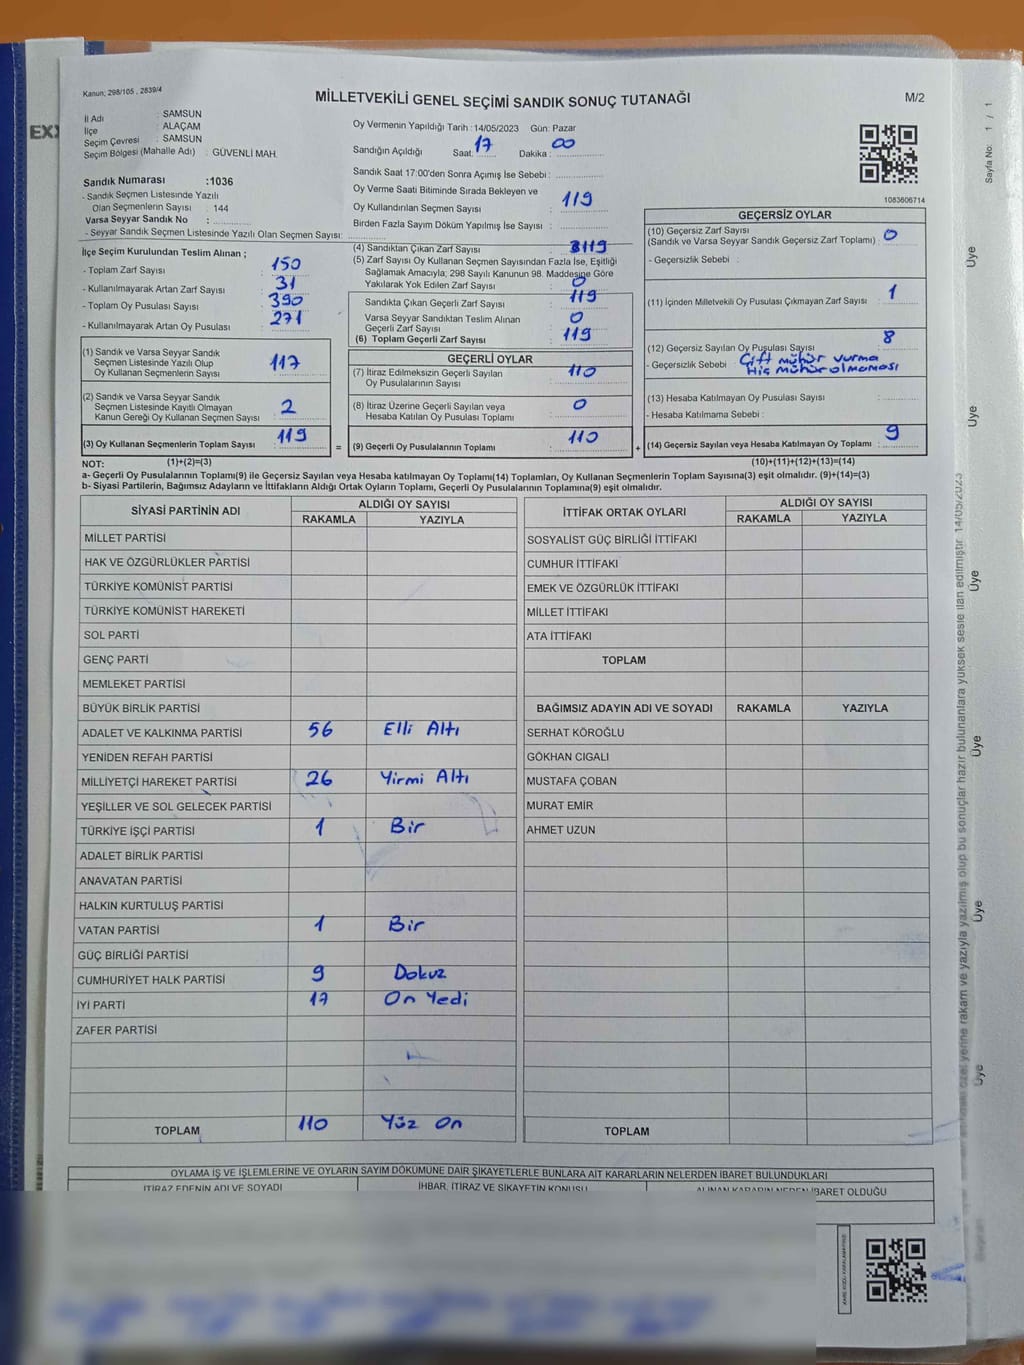 Kanun; 298/105 , 2839/4
MİLLETVEKİLİ GENEL SEÇİMİ SANDIK SONUÇ TUTANAĞI
M/2
İl Adı : SAMSUN
İlçe : ALAÇAM
Seçim Çevresi : SAMSUN
Seçim Bölgesi (Mahalle Adı) : GÜVENLİ MAH.
Sandık Numarası :1036
- Sandık Seçmen Listesinde Yazılı
Olan Seçmenlerin Sayısı : 144
Varsa Seyyar Sandık No :
- Seyyar Sandık Seçmen Listesinde Yazılı Olan Seçmen Sayısı:
Oy Vermenin Yapıldığı Tarih : 14/05/2023 Gün: Pazar
Sandığın Açıldığı Saat: 17 Dakika : 00
Sandık Saat 17:00'den Sonra Açımış İse Sebebi :
Oy Verme Saati Bitiminde Sırada Bekleyen ve
Oy Kullandırılan Seçmen Sayısı : 119
Birden Fazla Sayım Döküm Yapılmış İse Sayısı :
1083606714
Sayfa No: 1 / 1
İlçe Seçim Kurulundan Teslim Alınan ;
- Toplam Zarf Sayısı : 150
- Kullanılmayarak Artan Zarf Sayısı : 31
- Toplam Oy Pusulası Sayısı : 390
- Kullanılmayarak Artan Oy Pusulası : 271
(1) Sandık ve Varsa Seyyar Sandık
Seçmen Listesinde Yazılı Olup
Oy Kullanan Seçmenlerin Sayısı : 117
(2) Sandık ve Varsa Seyyar Sandık
Seçmen Listesinde Kayıtlı Olmayan
Kanun Gereği Oy Kullanan Seçmen Sayısı : 2
(3) Oy Kullanan Seçmenlerin Toplam Sayısı : 119
(1)+(2)=(3)
(4) Sandıktan Çıkan Zarf Sayısı : 119
(5) Zarf Sayısı Oy Kullanan Seçmen Sayısından Fazla İse, Eşitliği
Sağlamak Amacıyla; 298 Sayılı Kanunun 98. Maddesine Göre
Yakılarak Yok Edilen Zarf Sayısı : 0
Sandıkta Çıkan Geçerli Zarf Sayısı : 119
Varsa Seyyar Sandıktan Teslim Alınan
Geçerli Zarf Sayısı : 0
(6) Toplam Geçerli Zarf Sayısı : 119
GEÇERLİ OYLAR
(7) İtiraz Edilmeksizin Geçerli Sayılan
Oy Pusulalarının Sayısı : 110
(8) İtiraz Üzerine Geçerli Sayılan veya
Hesaba Katılan Oy Pusulası Toplamı : 0
= (9) Geçerli Oy Pusulalarının Toplamı : 110
GEÇERSİZ OYLAR
(10) Geçersiz Zarf Sayısı
(Sandık ve Varsa Seyyar Sandık Geçersiz Zarf Toplamı) : 0
- Geçersizlik Sebebi :
(11) İçinden Milletvekili Oy Pusulası Çıkmayan Zarf Sayısı : 1
(12) Geçersiz Sayılan Oy Pusulası Sayısı : 8
- Geçersizlik Sebebi : Çift mühür vurma
Hiç mühür olmaması
(13) Hesaba Katılmayan Oy Pusulası Sayısı :
- Hesaba Katılmama Sebebi :
+ (14) Geçersiz Sayılan veya Hesaba Katılmayan Oy Toplamı : 9
(10)+(11)+(12)+(13)=(14)
NOT:
a- Geçerli Oy Pusulalarının Toplamı(9) ile Geçersiz Sayılan veya Hesaba katılmayan Oy Toplamı(14) Toplamları, Oy Kullanan Seçmenlerin Toplam Sayısına(3) eşit olmalıdır. (9)+(14)=(3)
b- Siyasi Partilerin, Bağımsız Adayların ve İttifakların Aldığı Ortak Oyların Toplamı, Geçerli Oy Pusulalarının Toplamına(9) eşit olmalıdır.
SİYASİ PARTİNİN ADI ALDIĞI OY SAYISI
RAKAMLA YAZIYLA
MİLLET PARTİSİ
HAK VE ÖZGÜRLÜKLER PARTİSİ
TÜRKİYE KOMÜNİST PARTİSİ
TÜRKİYE KOMÜNİST HAREKETİ
SOL PARTİ
GENÇ PARTİ
MEMLEKET PARTİSİ
BÜYÜK BİRLİK PARTİSİ
ADALET VE KALKINMA PARTİSİ 56 Elli Altı
YENİDEN REFAH PARTİSİ
MİLLİYETÇİ HAREKET PARTİSİ 26 Yirmi Altı
YEŞİLLER VE SOL GELECEK PARTİSİ
TÜRKİYE İŞÇİ PARTİSİ 1 Bir
ADALET BİRLİK PARTİSİ
ANAVATAN PARTİSİ
HALKIN KURTULUŞ PARTİSİ
VATAN PARTİSİ 1 Bir
GÜÇ BİRLİĞİ PARTİSİ
CUMHURİYET HALK PARTİSİ 9 Dokuz
İYİ PARTİ 17 On Yedi
ZAFER PARTİSİ
TOPLAM 110 Yüz On
İTTİFAK ORTAK OYLARI ALDIĞI OY SAYISI
RAKAMLA YAZIYLA
SOSYALİST GÜÇ BİRLİĞİ İTTİFAKI
CUMHUR İTTİFAKI
EMEK VE ÖZGÜRLÜK İTTİFAKI
MİLLET İTTİFAKI
ATA İTTİFAKI
TOPLAM
BAĞIMSIZ ADAYIN ADI VE SOYADI RAKAMLA YAZIYLA
SERHAT KÖROĞLU
GÖKHAN CIGALI
MUSTAFA ÇOBAN
MURAT EMİR
AHMET UZUN
TOPLAM
OYLAMA İŞ VE İŞLEMLERİNE VE OYLARIN SAYIM DÖKÜMÜNE DAİR ŞİKAYETLERLE BUNLARA AİT KARARLARIN NELERDEN İBARET BULUNDUKLARI
İTİRAZ EDENİN ADI VE SOYADI
İHBAR, İTİRAZ VE ŞİKAYETİN KONUSU
ALINAN KARARIN NEDEN İBARET OLDUĞU
yerine rakam ve yazıyla yazılmış olup bu sonuçlar hazır bulunanlara yüksek sesle ilan edilmiştir. 14/05/2023
Üye
Üye
Üye
Üye
Üye
Üye